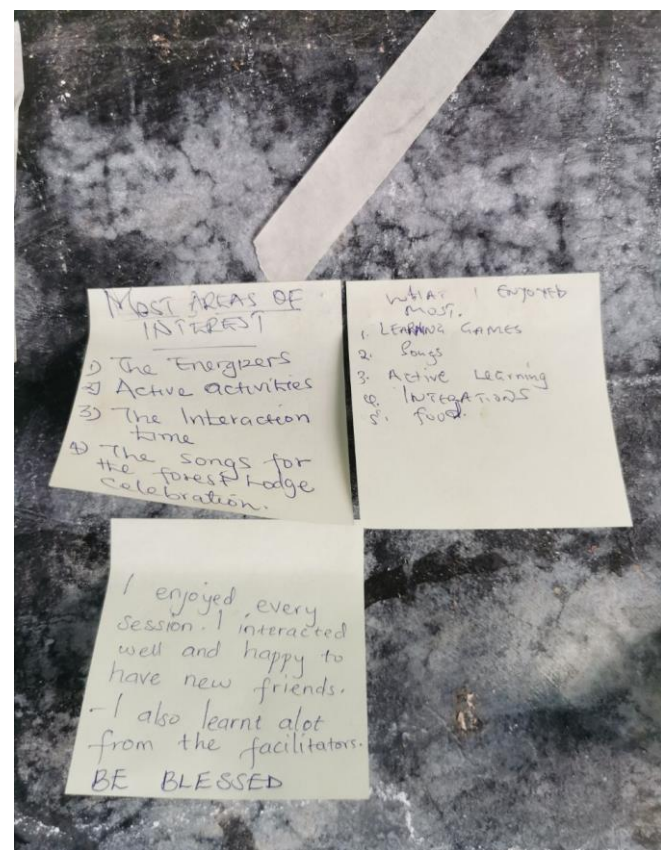 MOST AREAS OF
INTEREST
1) The Energizers
2) Active activities
3) The Interaction
time
4) The songs for
the forest Lodge
celebration.
WHAT I ENJOYED
MOST.
1. LEARNING GAMES
2. Songs
3. Active Learning
4. INTEGATIONS
5. food.
I enjoyed every
session. I interacted
well and happy to
have new friends.
-I also learnt alot
from the facilitators.
BE BLESSED